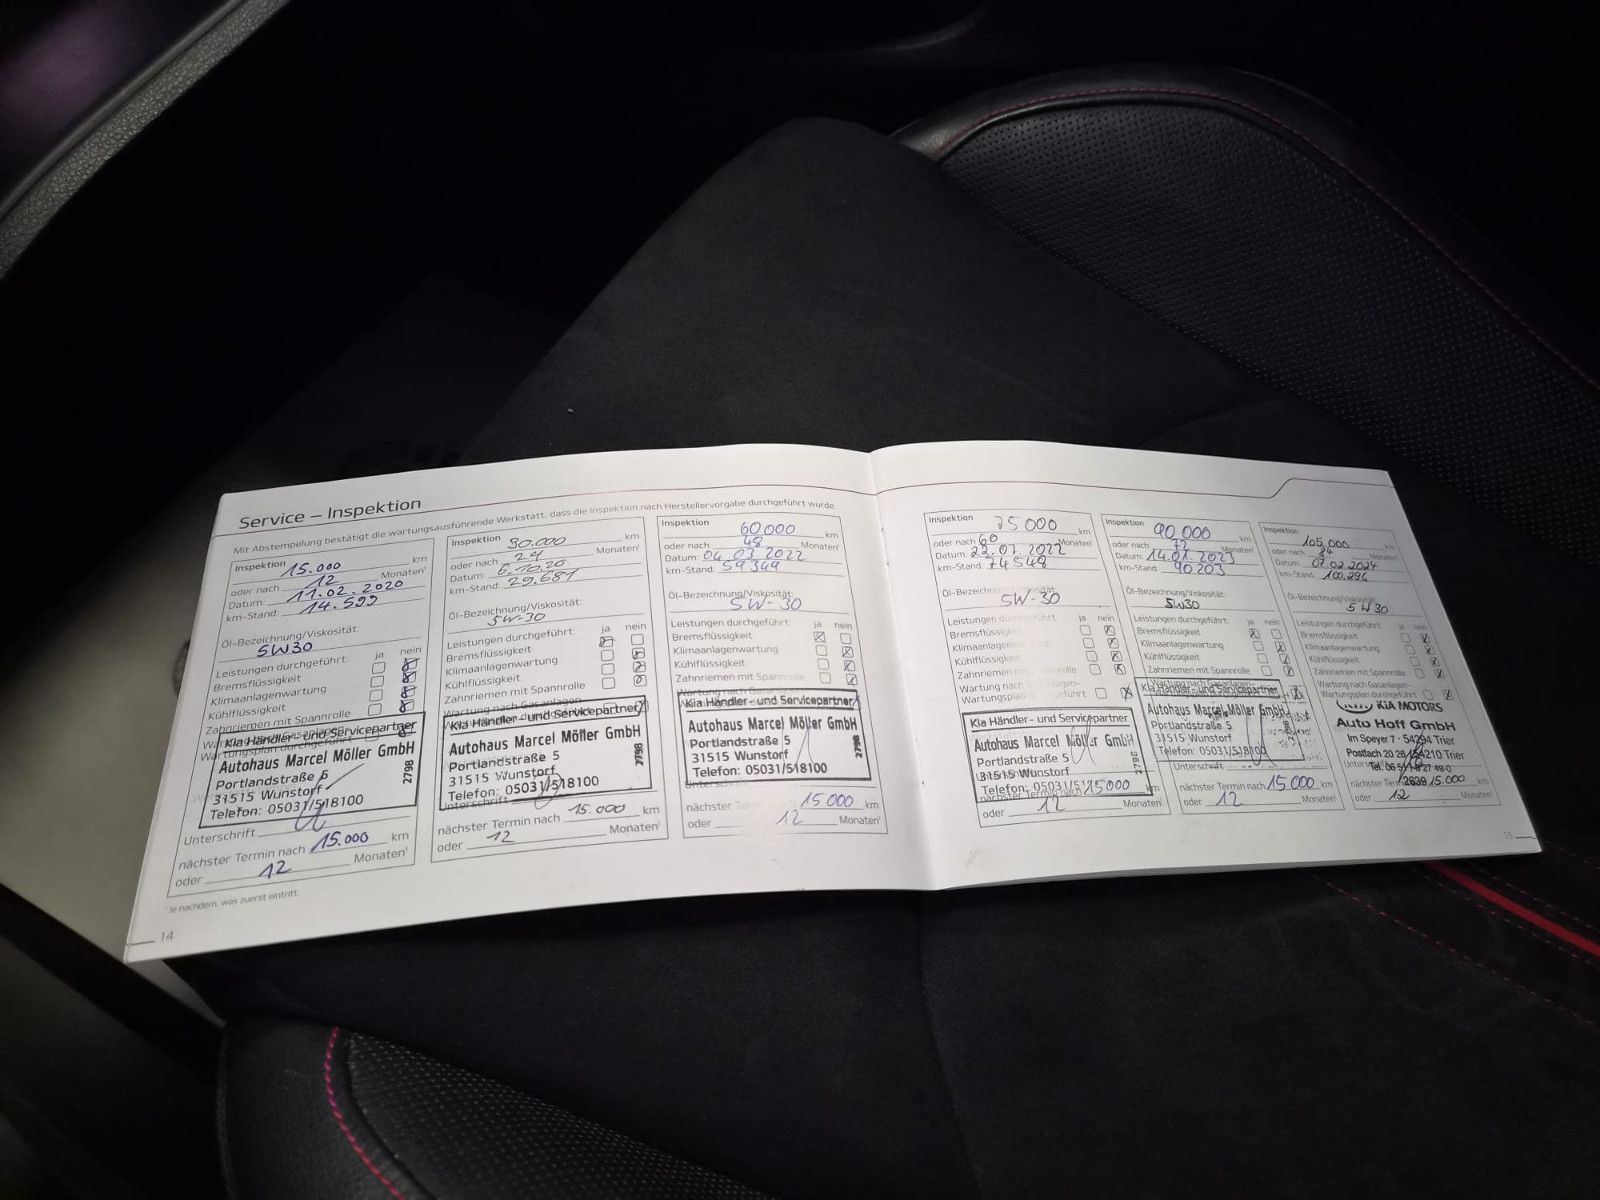 Service – Inspektion
Mit Abstempelung bestätigt die wartungsausführende Werkstatt, dass die Inspektion nach Herstellervorgabe durchgeführt wurde.
Inspektion 15.000 km
oder nach 12 Monaten¹
Datum: 11.02.2020
km-Stand: 14.599
Öl-Bezeichnung/Viskosität:
5W30
Leistungen durchgeführt: ja nein
Bremsflüssigkeit
Klimaanlagenwartung
Kühlflüssigkeit
Zahnriemen mit Spannrolle
Kia Händler- und Servicepartner
Autohaus Marcel Möller GmbH
Portlandstraße 5
31515 Wunstorf
Telefon: 05031/518100
2798
Unterschrift
nächster Termin nach 15.000 km
oder 12 Monaten¹
Inspektion 30.000 km
oder nach 24 Monaten¹
Datum: 6.10.20
km-Stand: 29.681
Öl-Bezeichnung/Viskosität:
5W-30
Leistungen durchgeführt: ja nein
Bremsflüssigkeit
Klimaanlagenwartung
Kühlflüssigkeit
Zahnriemen mit Spannrolle
Wartung nach Gasanlagen-
Kia Händler- und Servicepartner
Autohaus Marcel Möller GmbH
Portlandstraße 5
31515 Wunstorf
Telefon: 05031/518100
2798
Unterschrift
nächster Termin nach 15.000 km
oder 12 Monaten¹
Inspektion 60000 km
oder nach 48 Monaten¹
Datum: 04.03.2022
km-Stand: 59349
Öl-Bezeichnung/Viskosität:
5W-30
Leistungen durchgeführt: ja nein
Bremsflüssigkeit
Klimaanlagenwartung
Kühlflüssigkeit
Zahnriemen mit Spannrolle
Wartung nach Gasanlagen-
Kia Händler- und Servicepartner
Autohaus Marcel Möller GmbH
Portlandstraße 5
31515 Wunstorf
Telefon: 05031/518100
2798
Unterschrift
nächster Termin 15000 km
oder 12 Monaten¹
¹Je nachdem, was zuerst eintritt.
14
Inspektion 75000 km
oder nach 60 Monaten¹
Datum 22.07.2022
km-Stand: 74548
Öl-Bezeichnung/Viskosität:
5W-30
Leistungen durchgeführt: ja nein
Bremsflüssigkeit
Klimaanlagenwartung
Kühlflüssigkeit
Zahnriemen mit Spannrolle
Wartung nach Gasanlagen-
Wartungsplan durchgeführt
Kia Händler- und Servicepartner
Autohaus Marcel Möller GmbH
Portlandstraße 5
31515 Wunstorf
Telefon: 05031/518100
2798
nächster Termin nach 15000 km
oder 12 Monaten¹
Inspektion 90000 km
oder nach 72 Monaten¹
Datum: 14.07.2023
km-Stand: 90203
Öl-Bezeichnung/Viskosität:
5W30
Leistungen durchgeführt: ja nein
Bremsflüssigkeit
Klimaanlagenwartung
Kühlflüssigkeit
Zahnriemen mit Spannrolle
Wartung nach Gasanlagen-
Kia Händler- und Servicepartner
Autohaus Marcel Möller GmbH
Portlandstraße 5
31515 Wunstorf
Telefon: 05031/518100
2798
Unterschrift
nächster Termin nach 15000 km
oder 12 Monaten¹
Inspektion 105.000 km
oder nach 84 Monaten¹
Datum: 07.02.2024
km-Stand: 100.296
Öl-Bezeichnung/Viskosität:
5W30
Leistungen durchgeführt: ja nein
Bremsflüssigkeit
Klimaanlagenwartung
Kühlflüssigkeit
Zahnriemen mit Spannrolle
Wartung nach Gasanlagen-
Wartungsplan durchgeführt
KIA MOTORS
Auto Hoff GmbH
Im Speyer 7 · 54294 Trier
Postfach 20 28 · 54210 Trier
nächster Termin nach 15.000 km
oder 12 Monaten¹
15